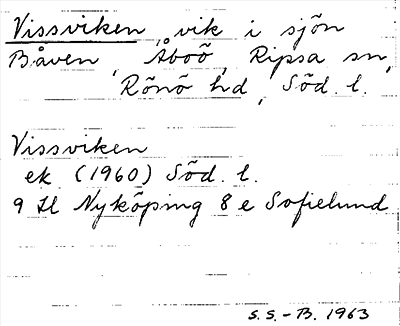 Vissviken, vik i sjön
Båven, Åboö, Ripsa sn,
Rönö hd, Söd. l.
Vissviken
ek (1960) Söd. l.
9 H Nyköping 8 e Sofielund
S.S.-B. 1963